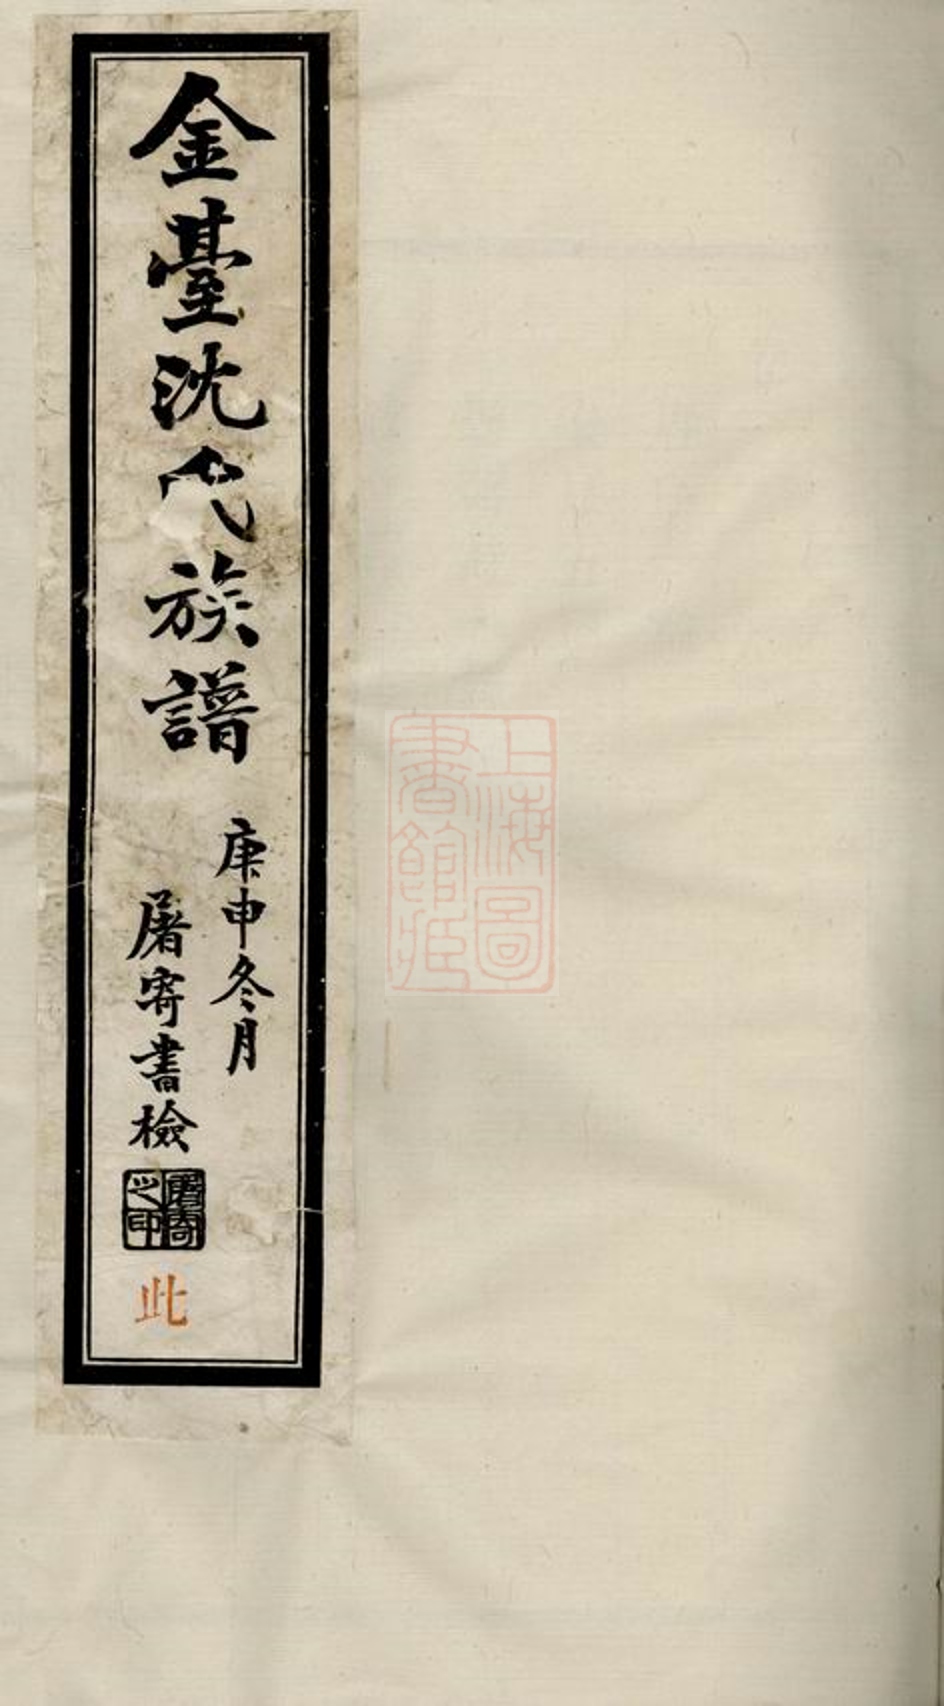 金臺沈氏族譜
庚申冬月
屠寄書檢
屠寄之印
此
上海圖書館藏